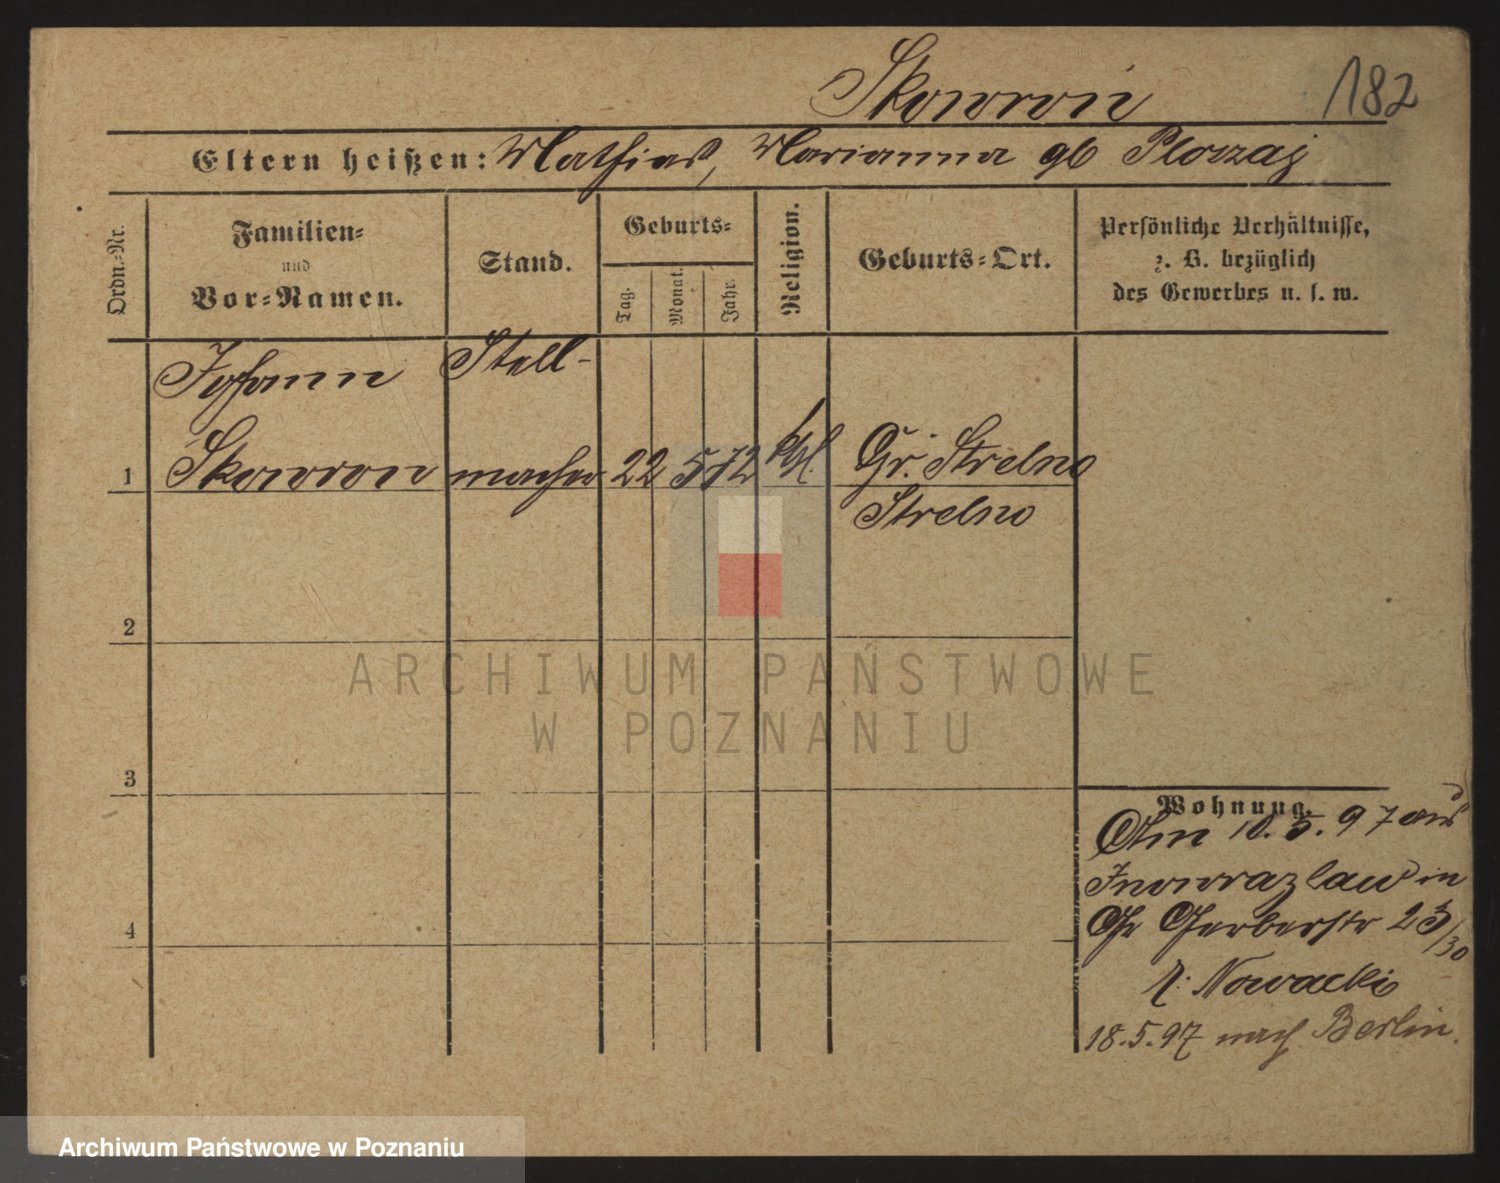 Skowroń 182
Eltern heißen: Mathias, Marianna gb Ploczaj
Ordn.-Nr.
Familien-
und
Vor-Namen.
Stand.
Geburts-
Tag.
Monat.
Jahr.
Religion.
Geburts-Ort.
Persönliche Verhältnisse,
z. B. bezüglich
des Gewerbes u. s. w.
Johann Stell-
1 Skowron macher 22 5 72 kth. Gr. Strelno
Strelno
2
3
4
Wohnung.
Am 10.5.97 aus
Inowrazlaw in
Gr Gerberstr 23/30
b. Nowacki
18.5.97 nach Berlin.
ARCHIWUM PAŃSTWOWE
W POZNANIU
Archiwum Państwowe w Poznaniu